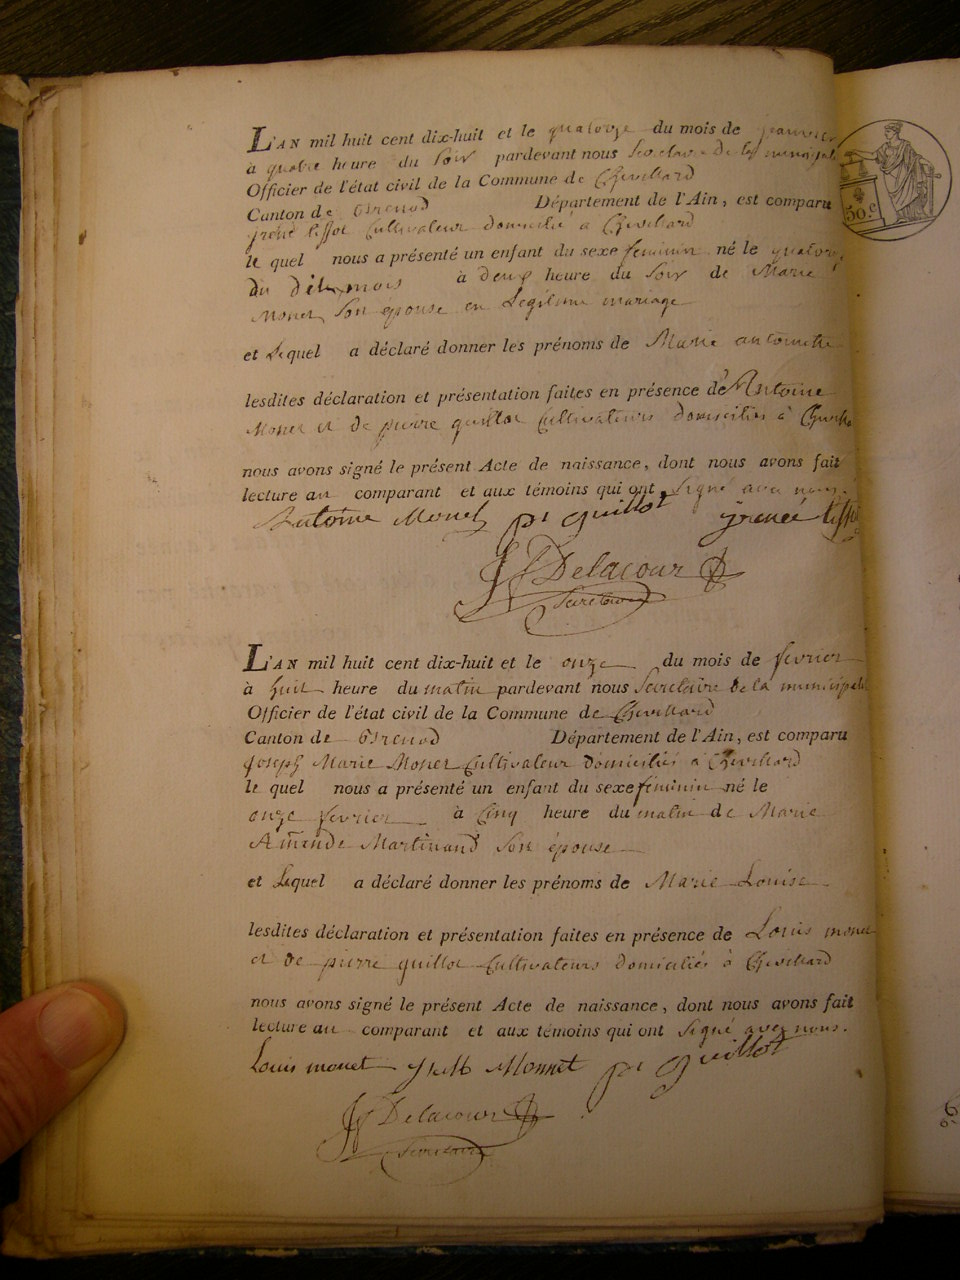 L'AN mil huit cent dix-huit et le quatorze du mois de jeanvier
à quatre heure du soir pardevant nous secretaire de la municipal
Officier de l'état civil de la Commune de Chevillard
Canton de Brenod Département de l'Ain, est comparu
50.c
jrené tissot Cultivateur domicilié à Chevillard
le quel nous a présenté un enfant du sexe feminin né le quatorze
du dit mois à deux heure du soir de Marie
Monet son épouse en Legitime mariage
et Lequel a déclaré donner les prénoms de Marie antoinette
lesdites déclaration et présentation faites en présence de Antoine
Monet et de pierre guillot Cultivateurs domiciliés à Chevilla
nous avons signé le présent Acte de naissance, dont nous avons fait
lecture au comparant et aux témoins qui ont signé avec nous.
Antoine Monet pr guillot
Delacour
Secretaire
L'AN mil huit cent dix-huit et le onze du mois de fevrier
à huit heure du matin pardevant nous Secretaire de la municipal
Officier de l'état civil de la Commune de Chevillard
Canton de Brenod Département de l'Ain, est comparu
joseph Marie Monet Cultivateur domiciliés a Chevillard
le quel nous a présenté un enfant du sexe feminin né le
onze fevrier à Cinq heure du matin de Marie
Martinand son épouse
et Lequel a déclaré donner les prénoms de Marie Louise
lesdites déclaration et présentation faites en présence de Louis monet
et de pierre guillot Cultivateurs domiciliés à Chevillard
nous avons signé le présent Acte de naissance, dont nous avons fait
lecture au comparant et aux témoins qui ont signé avec nous.
Louis monet Monnet pr guillot
Delacour
Secretaire